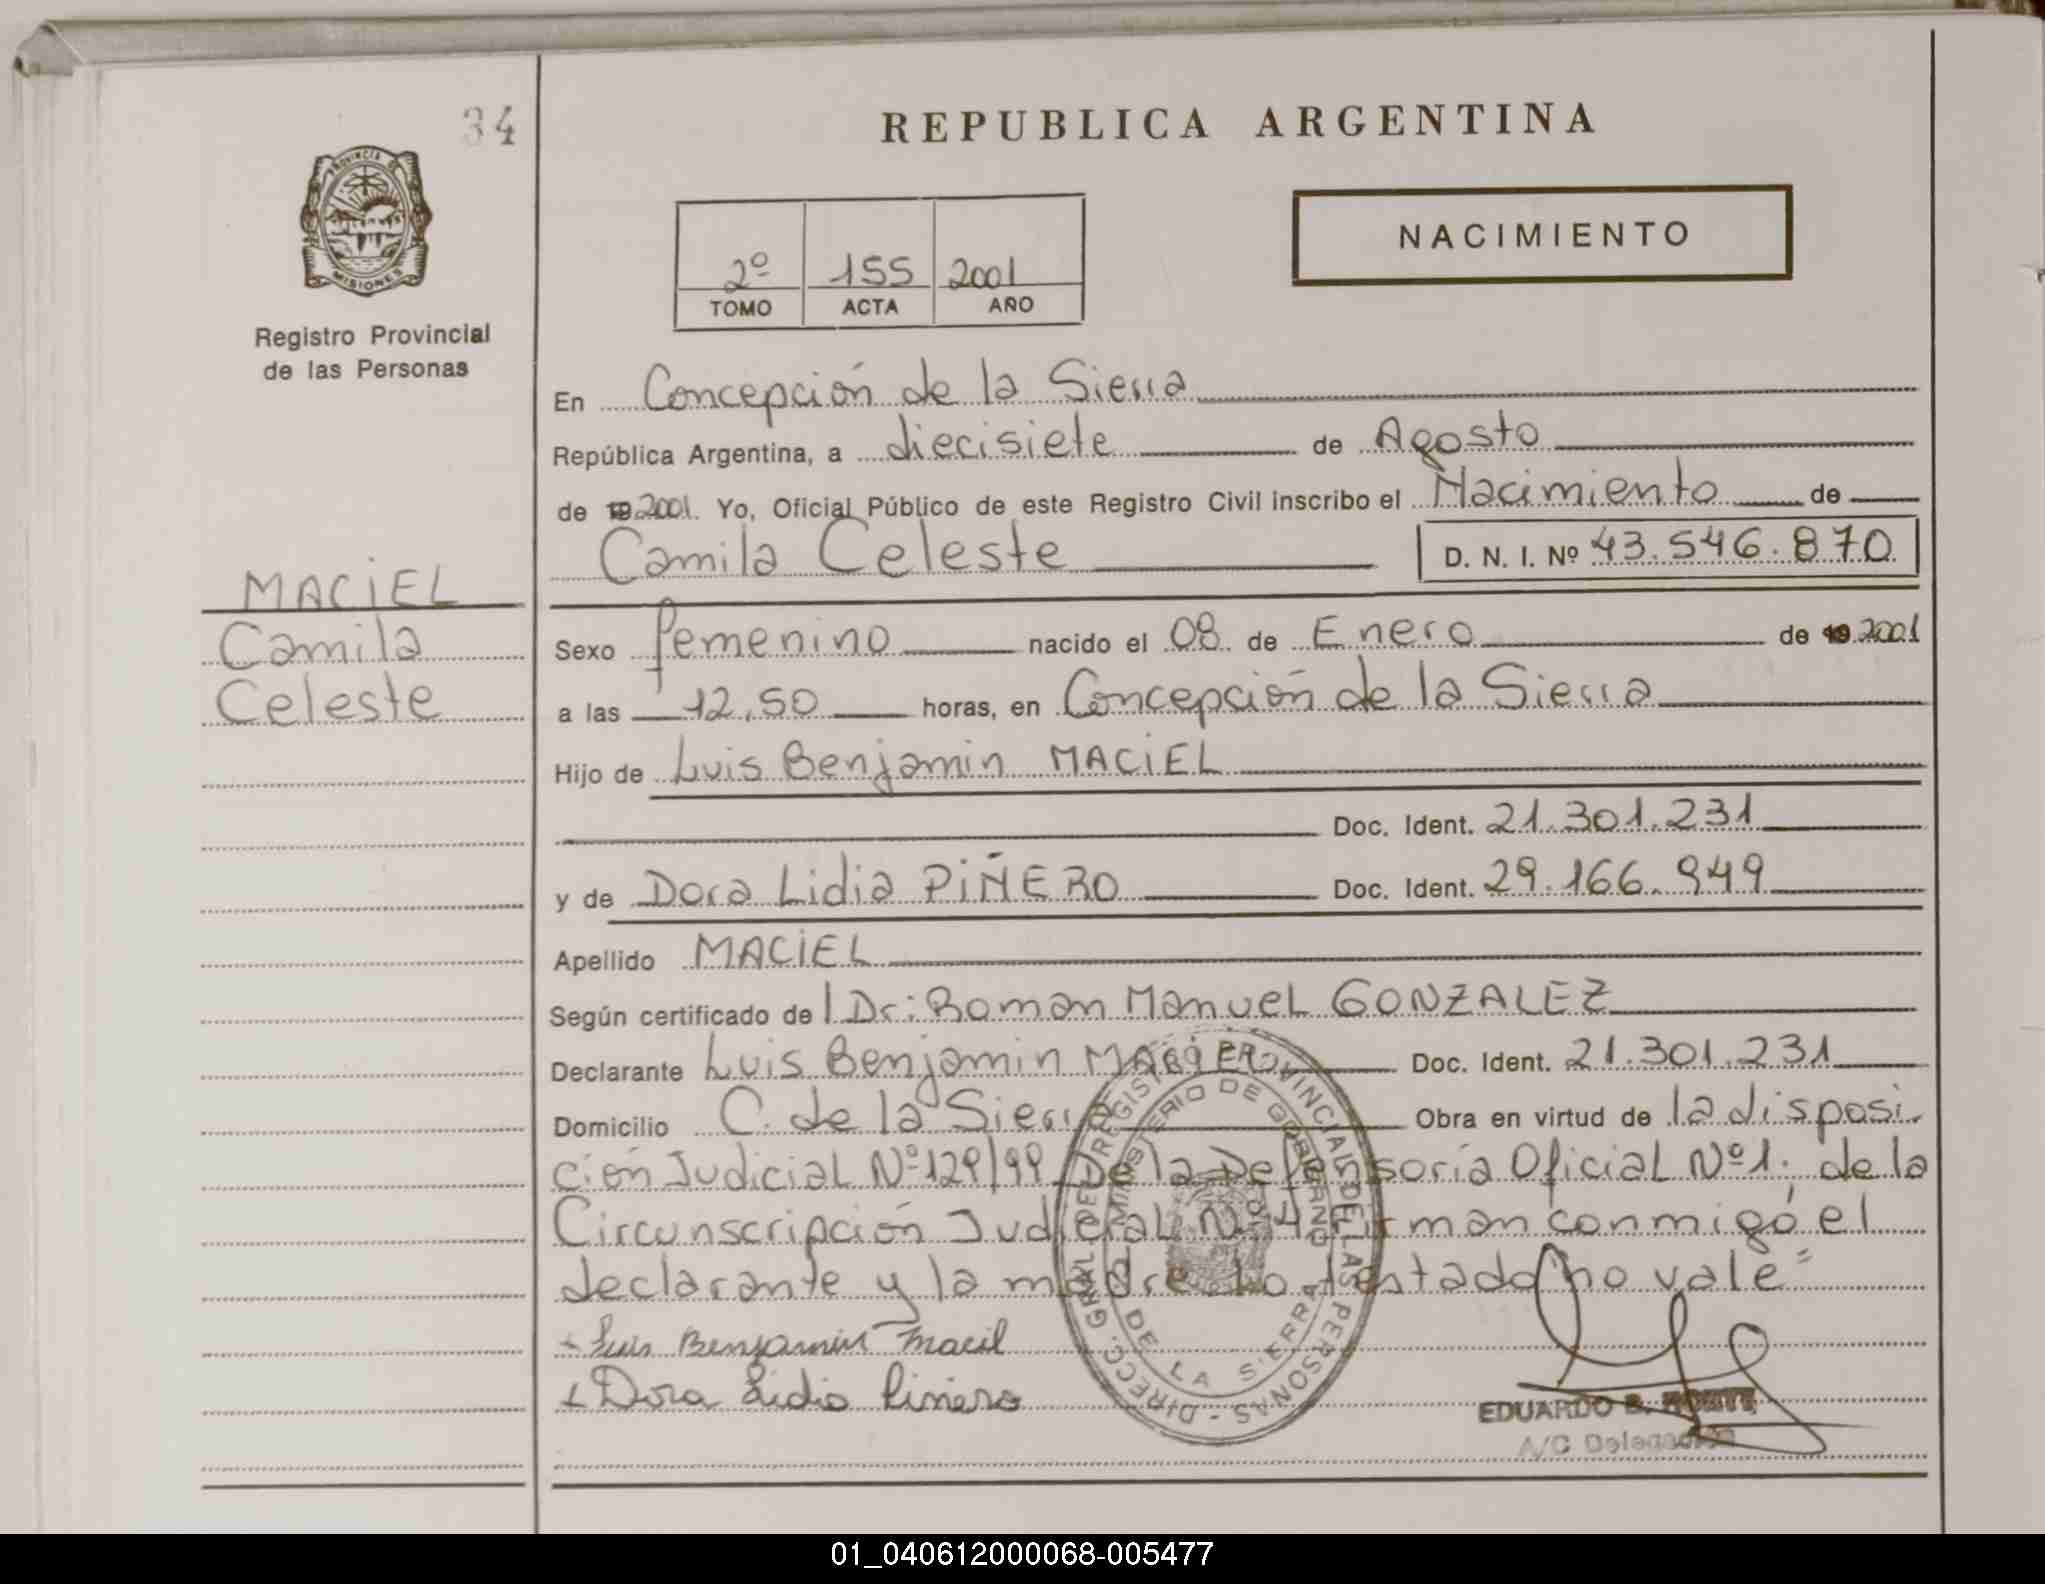 34
REPUBLICA ARGENTINA
PROVINCIA DE
MISIONES
NACIMIENTO
2º 155 2001
TOMO ACTA AÑO
Registro Provincial
de las Personas
En Concepción de la Sierra
República Argentina, a diecisiete de Agosto
de 19 2001. Yo, Oficial Público de este Registro Civil inscribo el Nacimiento de
Camila Celeste D. N. I. Nº 43.546.870
MACIEL
Camila
Celeste
Sexo femenino nacido el 08 de Enero de 19 2001
a las 12,50 horas, en Concepción de la Sierra
Hijo de Luis Benjamin MACIEL
Doc. Ident. 21.301.231
y de Dora Lidia PIÑERO Doc. Ident. 29.166.949
Apellido MACIEL
Según certificado de l Dr: Roman Manuel GONZALEZ
Declarante Luis Benjamin MACIEL Doc. Ident. 21.301.231
Domicilio C. de la Sierra Obra en virtud de la disposi-
ción Judicial Nº 129/99 De la Defensoría Oficial Nº1. de la
Circunscripción Judicial Nº 4 Firman conmigo el
declarante y la madre Lo testado "no vale"
Luis Benjamin Maciel
Dora Lidia Piñero
DIRECC. GRAL. DEL REGISTRO PROVINCIAL DE LAS PERSONAS
MINISTERIO DE GOBIERNO
DE LA SIERRA
EDUARDO B.
A/C Delegación
01_040612000068-005477